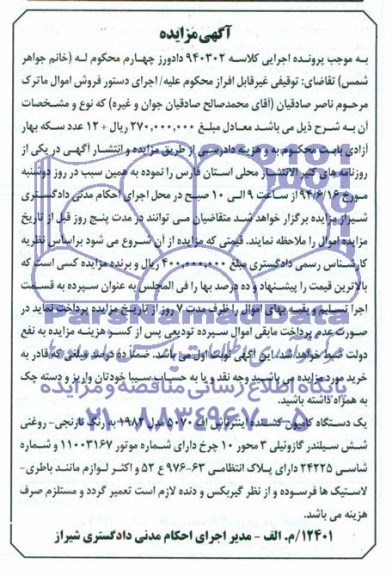 آگهی مزایده
به موجب پرونده اجرایی کلاسه ۹۴۰۳۰۲ دادورز چهارم محکوم له (خانم جواهر
شمس) تقاضای: توقیفی غیرقابل افراز محکوم علیه/ اجرای دستور فروش اموال ماترک
مرحوم ناصر صادقیان (آقای محمدصالح صادقیان جوان و غیره) که نوع و مشخصات
آن به شرح ذیل می باشد معادل مبلغ ۲۷۰,۰۰۰,۰۰۰ ریال + ۱۲ عدد سکه بهار
آزادی بابت محکوم به و هزینه دادرسی از طریق مزایده و انتشار آگهی در یکی از
روزنامه های کثیر الانتشار محلی استان فارس را نموده به همین سبب در روز دوشنبه
مورخ ۹۴/۶/۱۶ از ساعت ۹ الی ۱۰ صبح در محل اجرای احکام مدنی دادگستری
شیراز مزایده برگزار خواهد شد متقاضیان می توانند در مدت پنج روز قبل از تاریخ
مزایده اموال را ملاحظه نمایند. قیمتی که مزایده از آن شروع می شود براساس نظریه
کارشناس رسمی دادگستری مبلغ ۴۰۰,۰۰۰,۰۰۰ ریال و برنده مزایده کسی است که
بالاترین قیمت را پیشنهاد و ده درصد بها را فی المجلس به عنوان سپرده به قسمت
اجرا تسلیم و بقیه بهای اموال را ظرف مدت ۷ روز از تاریخ مزایده پرداخت نماید در
صورت عدم پرداخت مابقی اموال سپرده تودیعی پس از کسر هزینه مزایده به نفع
دولت ضبط خواهد شد. این آگهی نوبت اول می باشد. ضمنا ده درصد مبلغی که قادر به
خرید مورد مزایده می باشید وجه نقد و یا به حساب سیبا خودتان واریز و دسته چک
به همراه داشته باشید.
پایگاه اطلاع رسانی مناقصه و مزایده
۰۲۱-۸۸۳۴۹۶۷۰-۵
یک دستگاه کامیون کشنده اینترناش اف ۵۰۷۰ مدل ۱۹۸۲ به رنگ نارنجی- روغنی
شش سیلندر گازوئیلی ۳ محور ۱۰ چرخ دارای شماره موتور ۱۱۰۰۳۱۶۷ و شماره
شاسی ۲۴۲۲۵ دارای پلاک انتظامی ۶۳-۹۷۶ ع ۵۲ و اکثر لوازم مانند باطری-
لاستیک ها فرسوده و از نظر گیربکس و دنده لازم است تعمیر گردد و مستلزم صرف
هزینه می باشد.
۱۲۴۰۱/م. الف - مدیر اجرای احکام مدنی دادگستری شیراز